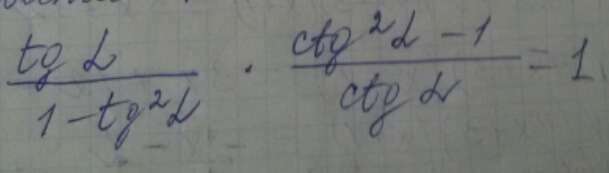 tg α / (1 - tg²α) · (ctg²α - 1) / ctg α = 1